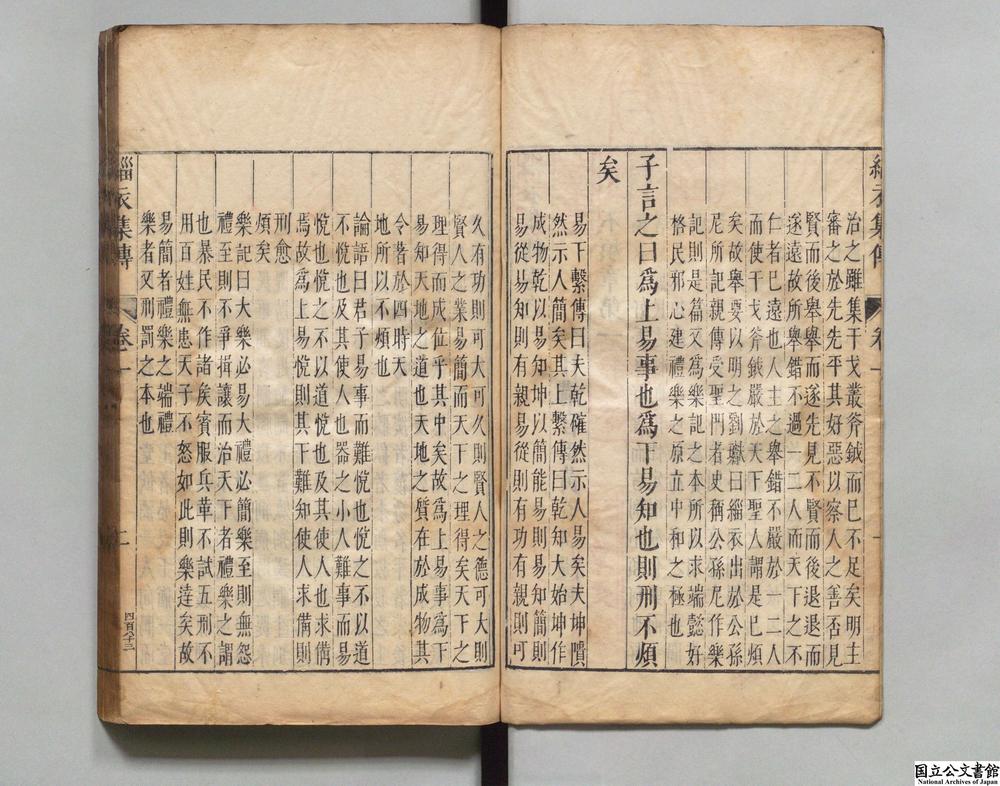 緇衣集傳 卷一 一
治之雖集干戈叢斧鉞而巳不足矣明主
審之於先先平其好惡以察人之善否見
賢而後舉舉而遂先見不賢而後退退而
遂遠故所舉錯不過一二人而天下之不
仁者巳遠也人主之舉錯不嚴於一二人
而使干戈斧鉞嚴於天下聖人謂是巳煩
矣故舉要以明之劉瓛曰緇衣出於公孫
尼所記親傳受聖門者史稱公孫尼作樂
記則是篇又為樂記之本所以求端懿好
格民邪心建禮樂之原立中和之極也
子言之曰為上易事也為下易知也則刑不煩
矣
易下繫傳曰夫乾確然示人易矣夫坤隤
然示人簡矣其上繫傳曰乾知大始坤作
成物乾以易知坤以簡能易則易知簡則
易從易知則有親易從則有功有親則可
久有功則可大可久則賢人之德可大則
賢人之業易簡而天下之理得矣天下之
理得而成位乎其中矣故為上易事為下
易知天地之道也天地之質在於成物其
令昔於四時天
地所以不煩也
論語曰君子易事而難悅也悅之不以道
不悅也及其使人也器之小人難事而易
悅也悅之不以道悅也及其使人也求備
焉故為上易悅則其下難知使人求備則
刑愈
煩矣
樂記曰大樂必易大禮必簡樂至則無怨
禮至則不爭揖讓而治天下者禮樂之謂
也暴民不作諸矦賓服兵革不試五刑不
用百姓無患天子不怒如此則樂達矣故
易簡者禮樂之端禮
樂者又刑罰之本也
緇衣集傳 卷一 二 四百八十三
国立公文書館
National Archives of Japan